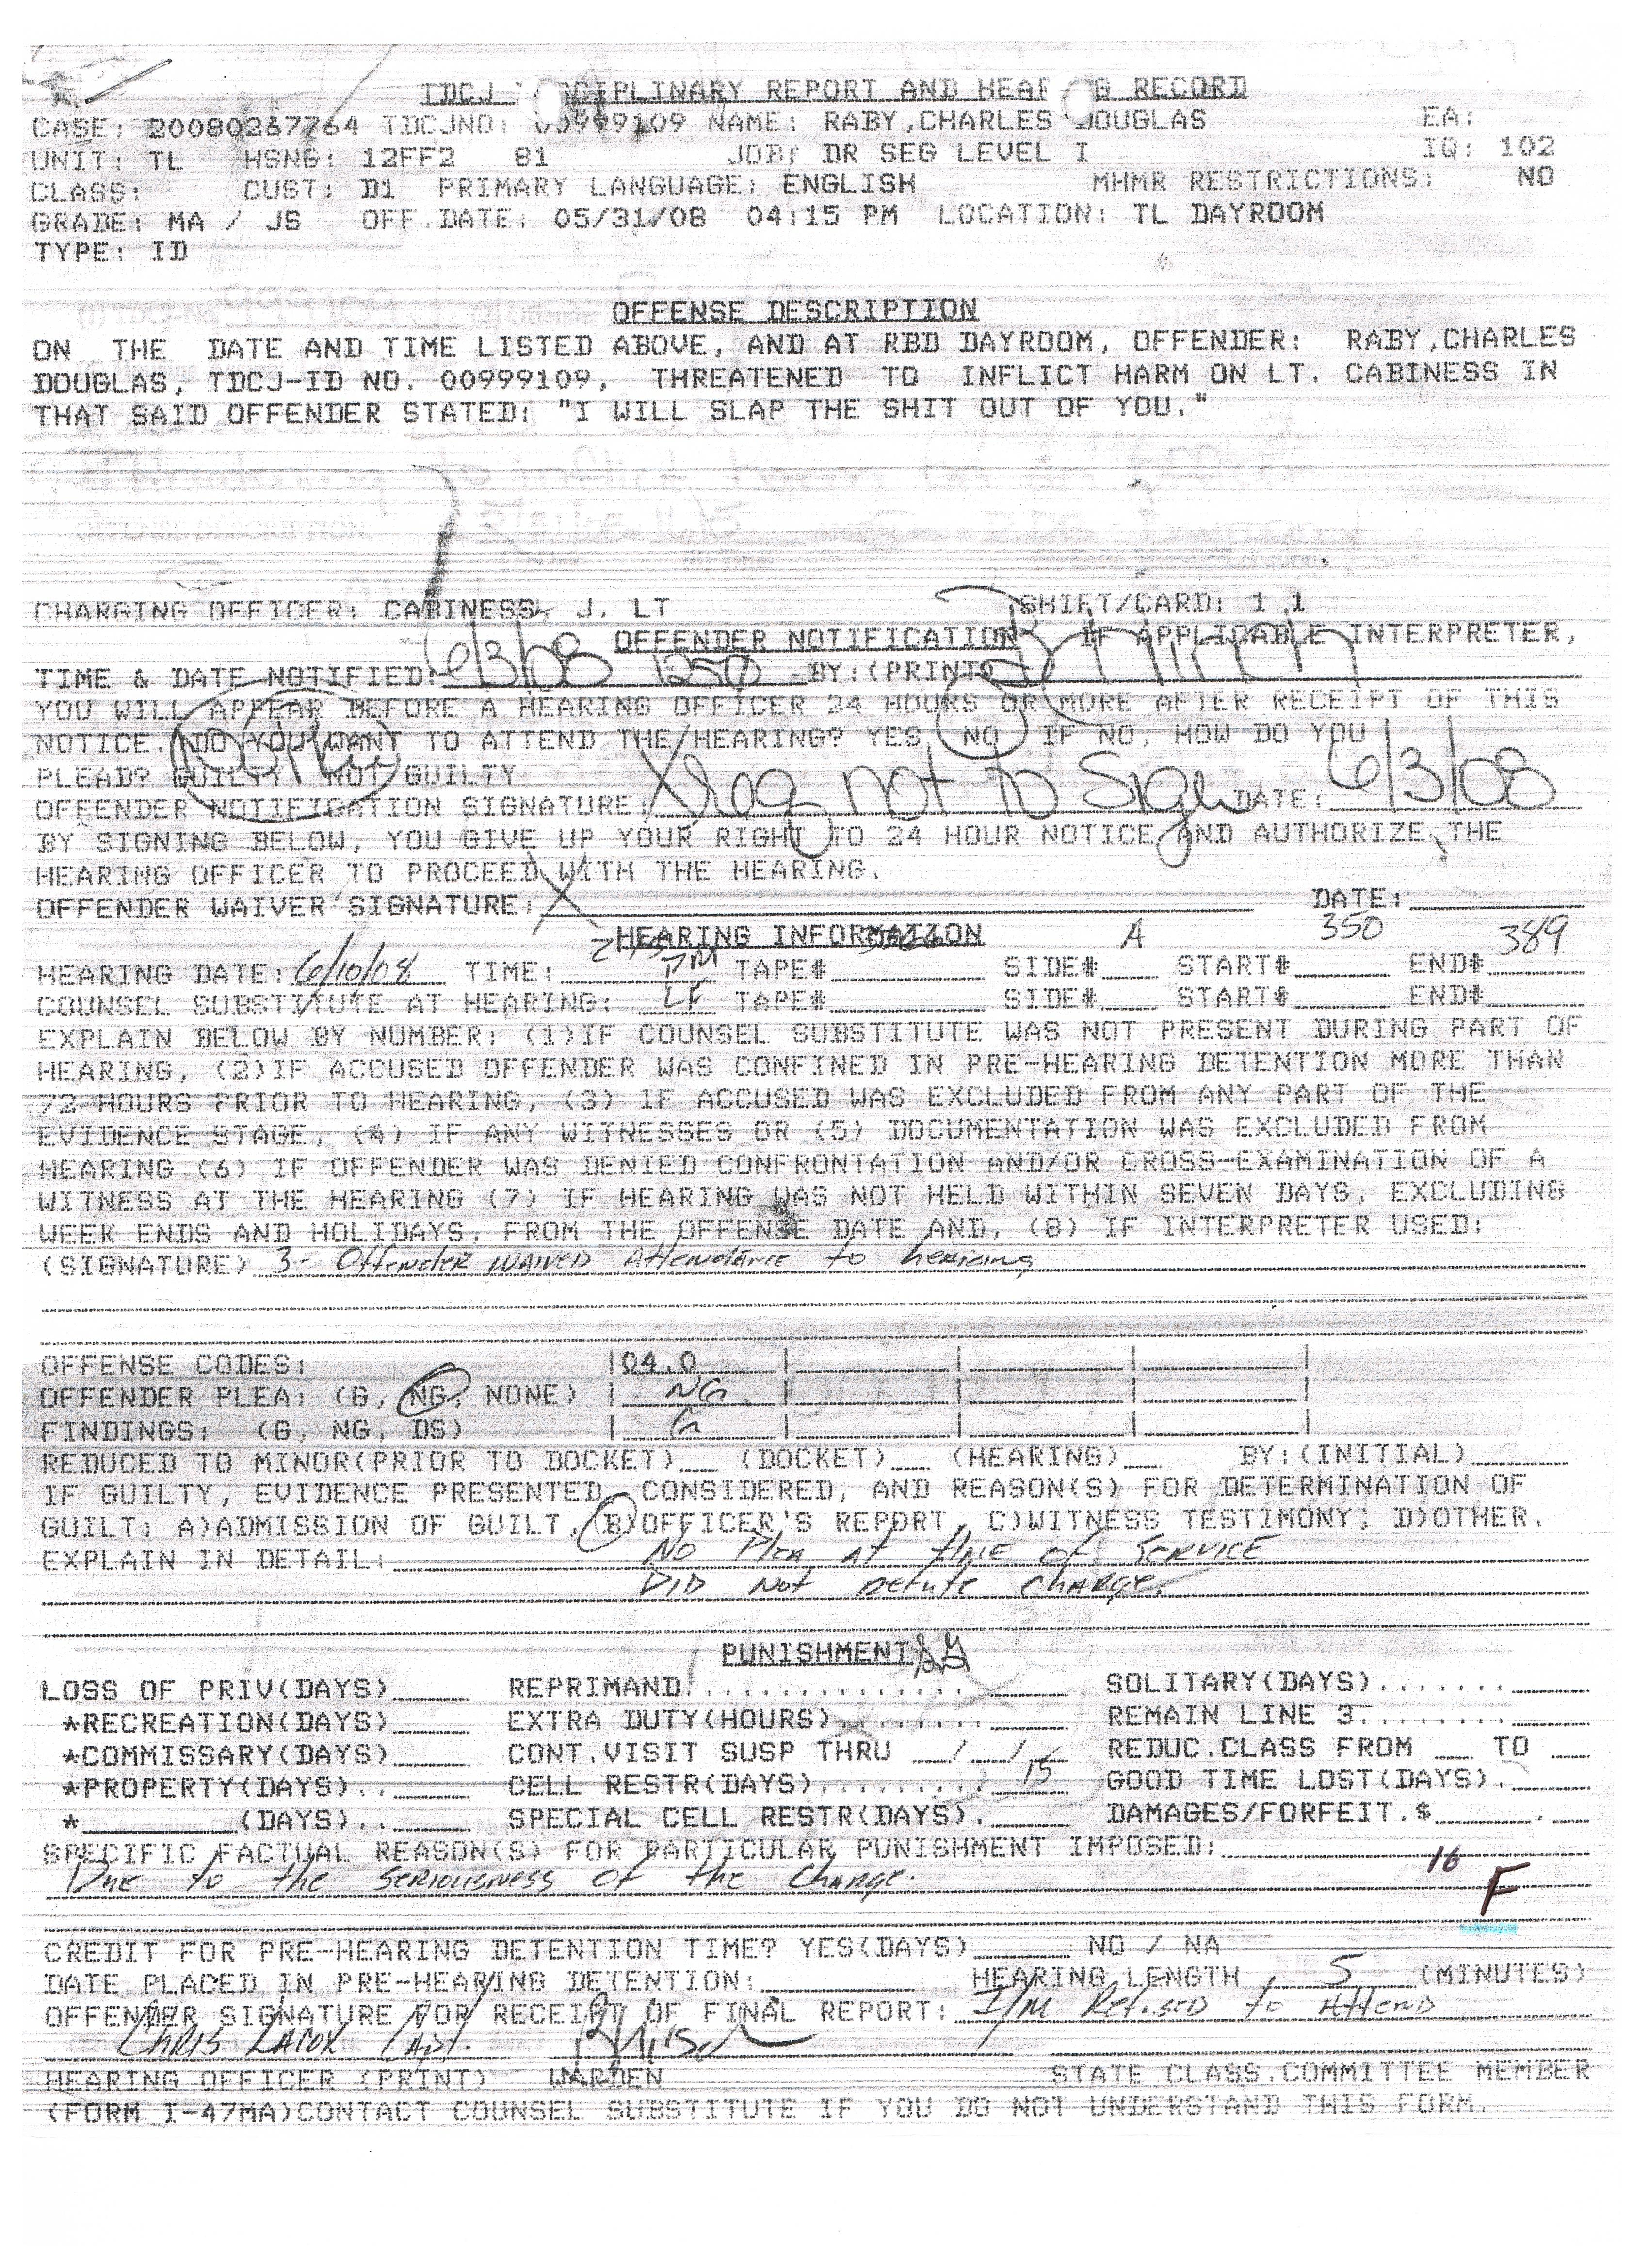 TDCJ DISCIPLINARY REPORT AND HEARING RECORD
CASE: 20080267764 TDCJNO: 00999109 NAME: RABY,CHARLES DOUGLAS EA:
UNIT: TL HSNG: 12FF2 81 JOB: DR SEG LEVEL I IQ: 102
CLASS: CUST: D1 PRIMARY LANGUAGE: ENGLISH MHMR RESTRICTIONS: NO
GRADE: MA / JS OFF.DATE: 05/31/08 04:15 PM LOCATION: TL DAYROOM
TYPE: ID
OFFENSE DESCRIPTION
ON THE DATE AND TIME LISTED ABOVE, AND AT RBD DAYROOM, OFFENDER: RABY,CHARLES
DOUGLAS, TDCJ-ID NO. 00999109, THREATENED TO INFLICT HARM ON LT. CABINESS IN
THAT SAID OFFENDER STATED: "I WILL SLAP THE SHIT OUT OF YOU."
CHARGING OFFICER: CABINESS, J. LT SHIFT/CARD: 1 1
OFFENDER NOTIFICATION IF APPLICABLE INTERPRETER,
TIME & DATE NOTIFIED: 6/3/08 BY:(PRINT)
YOU WILL APPEAR BEFORE A HEARING OFFICER 24 HOURS OR MORE AFTER RECEIPT OF THIS
NOTICE. DO YOU WANT TO ATTEND THE HEARING? YES NO IF NO, HOW DO YOU
PLEAD? GUILTY NOT GUILTY
OFFENDER NOTIFICATION SIGNATURE: X not to Sign DATE: 6/3/08
BY SIGNING BELOW, YOU GIVE UP YOUR RIGHT TO 24 HOUR NOTICE AND AUTHORIZE THE
HEARING OFFICER TO PROCEED WITH THE HEARING.
OFFENDER WAIVER SIGNATURE: X DATE:
HEARING INFORMATION A 350 389
HEARING DATE: 6/10/08 TIME: PM TAPE# SIDE# START# END#
COUNSEL SUBSTITUTE AT HEARING: LF TAPE# SIDE# START# END#
EXPLAIN BELOW BY NUMBER: (1)IF COUNSEL SUBSTITUTE WAS NOT PRESENT DURING PART OF
HEARING, (2)IF ACCUSED OFFENDER WAS CONFINED IN PRE-HEARING DETENTION MORE THAN
72 HOURS PRIOR TO HEARING, (3) IF ACCUSED WAS EXCLUDED FROM ANY PART OF THE
EVIDENCE STAGE, (4) IF ANY WITNESSES OR (5) DOCUMENTATION WAS EXCLUDED FROM
HEARING (6) IF OFFENDER WAS DENIED CONFRONTATION AND/OR CROSS-EXAMINATION OF A
WITNESS AT THE HEARING (7) IF HEARING WAS NOT HELD WITHIN SEVEN DAYS, EXCLUDING
WEEK ENDS AND HOLIDAYS, FROM THE OFFENSE DATE AND, (8) IF INTERPRETER USED:
(SIGNATURE) 3- Offender waived Attendance to hearing
OFFENSE CODES: 04.0
OFFENDER PLEA: (G, NG, NONE) NG
FINDINGS: (G, NG, DS) G
REDUCED TO MINOR(PRIOR TO DOCKET) (DOCKET) (HEARING) BY:(INITIAL)
IF GUILTY, EVIDENCE PRESENTED, CONSIDERED, AND REASON(S) FOR DETERMINATION OF
GUILT: A)ADMISSION OF GUILT, B)OFFICER'S REPORT, C)WITNESS TESTIMONY; D)OTHER.
EXPLAIN IN DETAIL: No Plea at time of Service
Did Not refute Charge.
PUNISHMENT
LOSS OF PRIV(DAYS) REPRIMAND.............. SOLITARY(DAYS).......
*RECREATION(DAYS) EXTRA DUTY(HOURS)....... REMAIN LINE 3........
*COMMISSARY(DAYS) CONT.VISIT SUSP THRU / / REDUC.CLASS FROM TO
*PROPERTY(DAYS).. CELL RESTR(DAYS)........ 15 GOOD TIME LOST(DAYS).
* (DAYS).. SPECIAL CELL RESTR(DAYS). DAMAGES/FORFEIT.$ .
SPECIFIC FACTUAL REASON(S) FOR PARTICULAR PUNISHMENT IMPOSED:
Due to the seriousness of the Charge. 16 F
CREDIT FOR PRE-HEARING DETENTION TIME? YES(DAYS) NO / NA
DATE PLACED IN PRE-HEARING DETENTION: HEARING LENGTH 5 (MINUTES)
OFFENDER SIGNATURE FOR RECEIPT OF FINAL REPORT: I/M Refused to Attend
Chris Lacox Capt.
HEARING OFFICER (PRINT) WARDEN STATE CLASS.COMMITTEE MEMBER
(FORM I-47MA)CONTACT COUNSEL SUBSTITUTE IF YOU DO NOT UNDERSTAND THIS FORM.